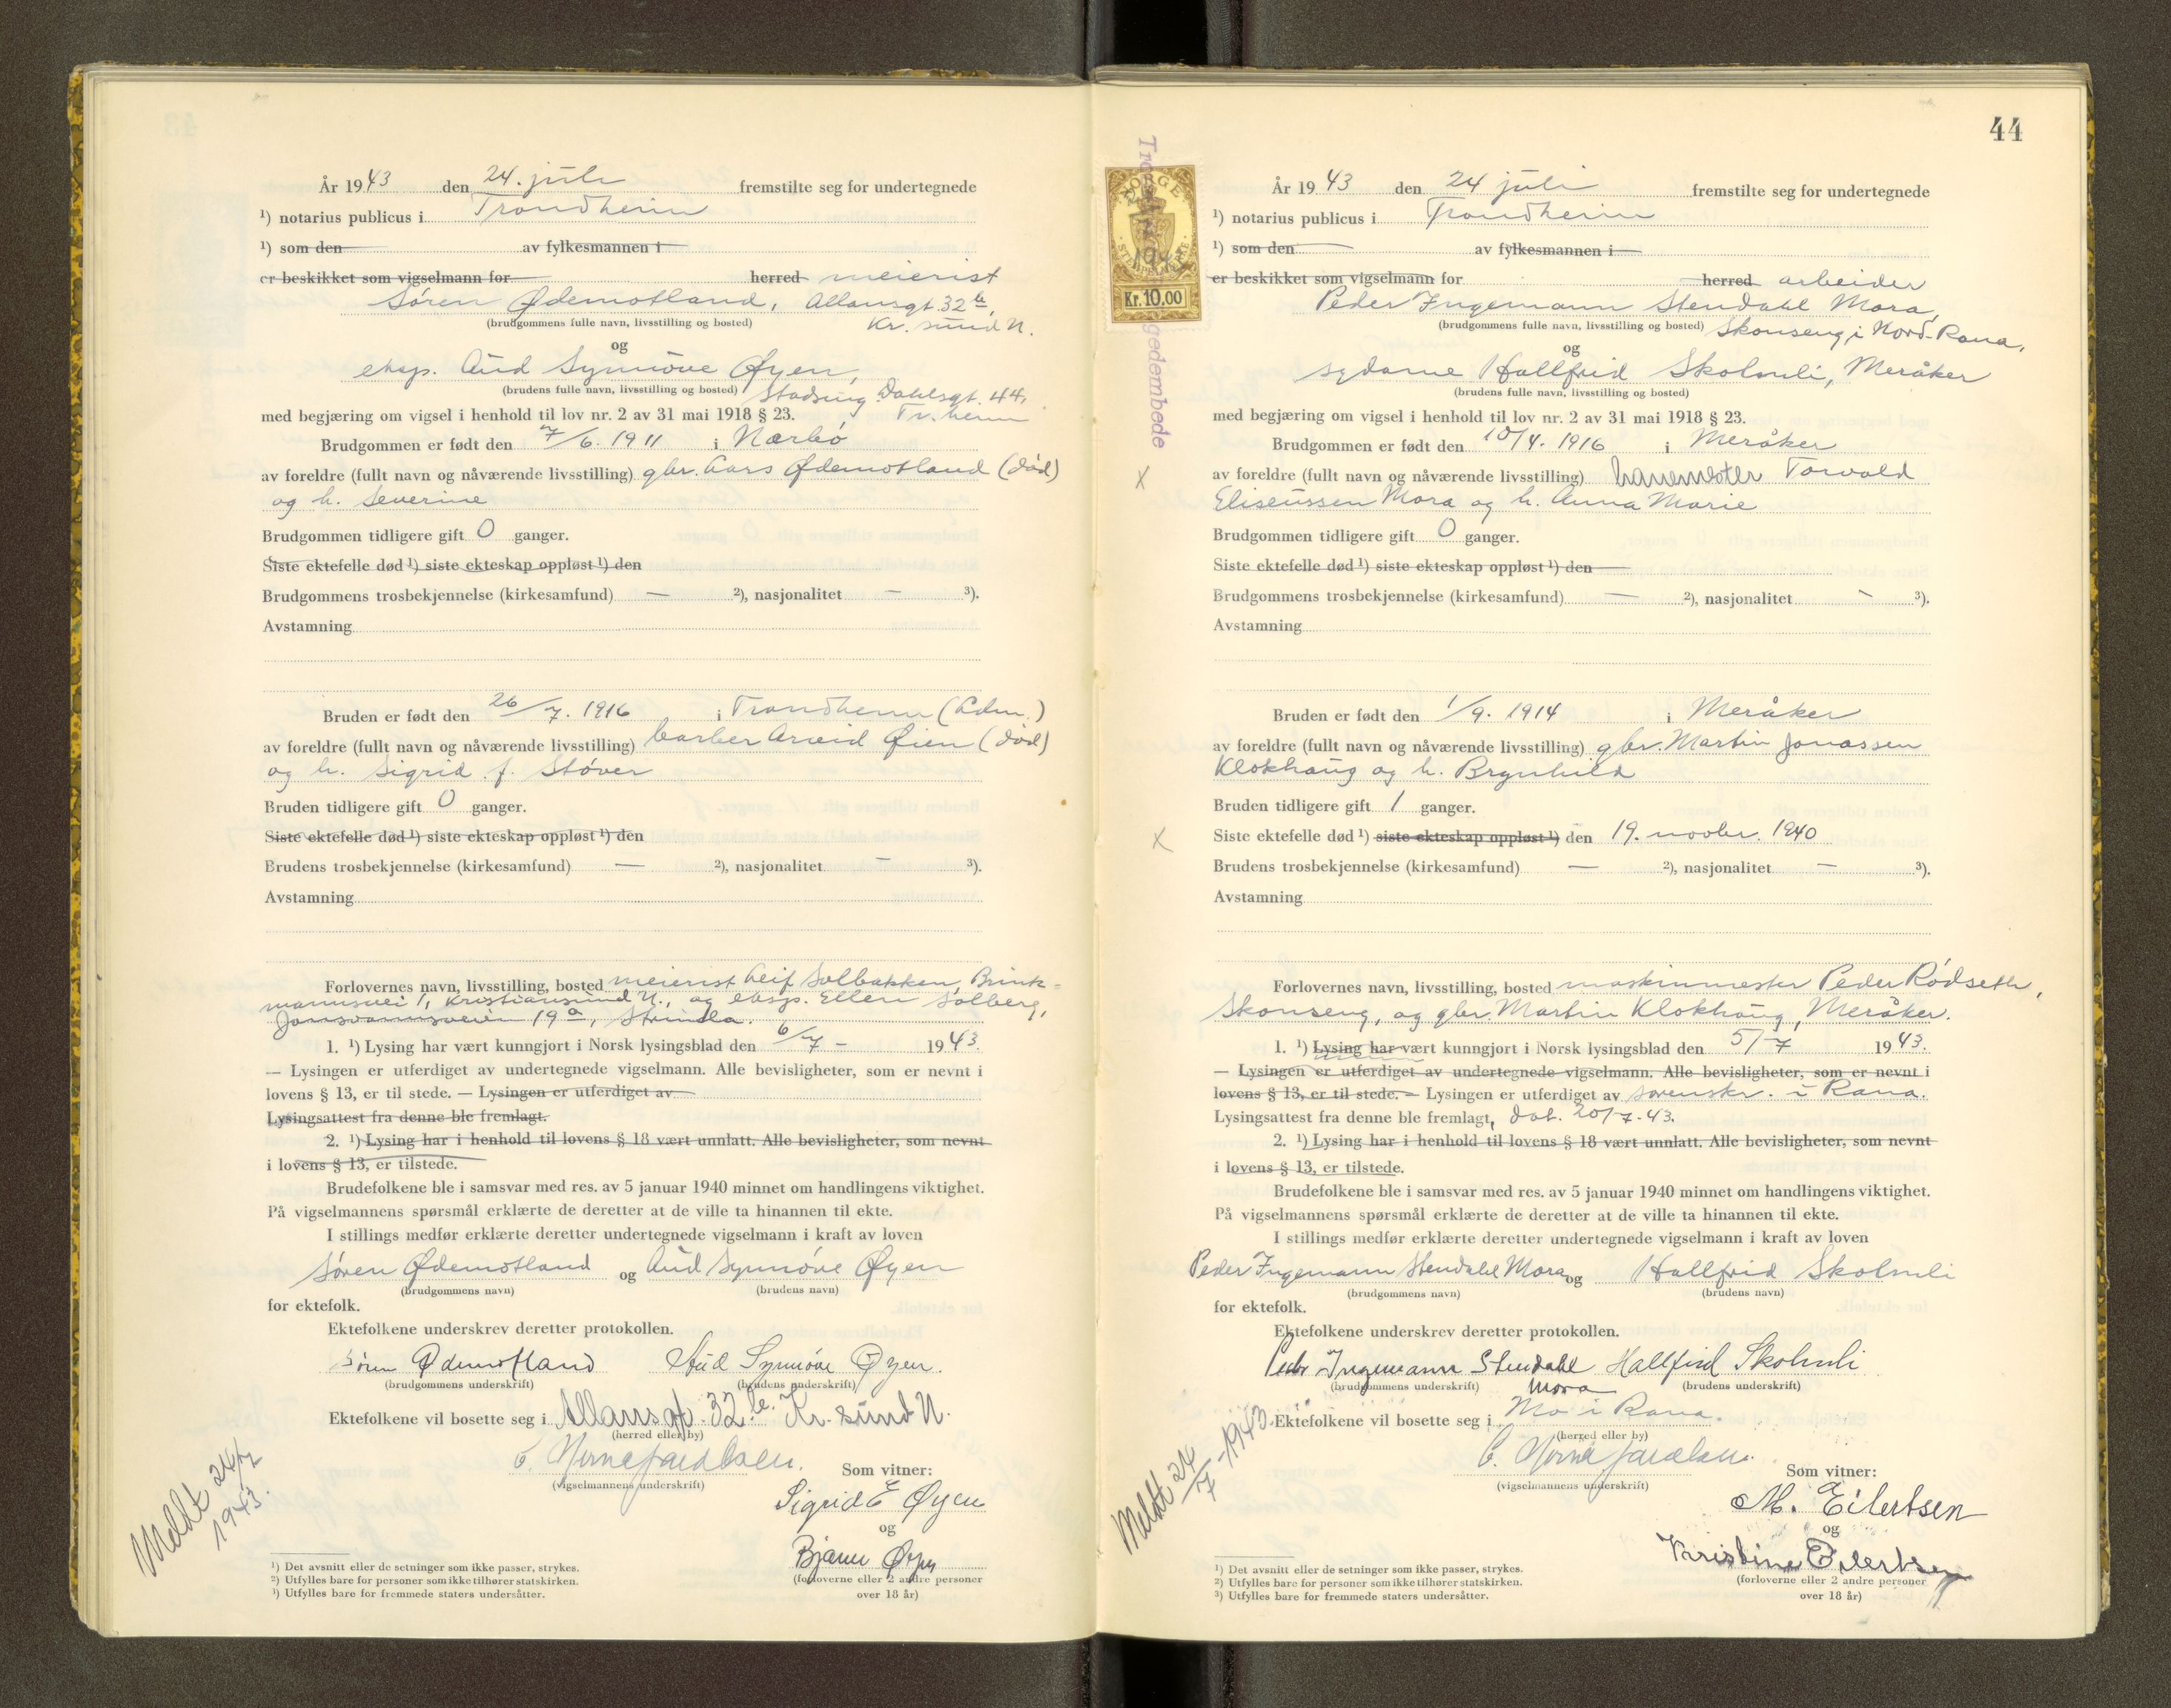 År 1943 den 24. juli fremstilte seg for undertegnede
¹) notarius publicus i Trondheim
¹) som den av fylkesmannen i
er beskikket som vigselmann for herred meierist
Søren Ødemotland, Allansgt. 32 b,
(brudgommens fulle navn, livsstilling og bosted) Kr. sund N.
og
eksp. Aud Synnøve Øyen,
(brudens fulle navn, livsstilling og bosted) Stadsing. Dahlsgt. 44,
med begjæring om vigsel i henhold til lov nr. 2 av 31 mai 1918 § 23. Tr.heim
Brudgommen er født den 7/6. 1911 i Nærbø
av foreldre (fullt navn og nåværende livsstilling) gbr. Lars Ødemotland (død)
og h. Severine
Brudgommen tidligere gift 0 ganger.
Siste ektefelle død ¹) siste ekteskap oppløst ¹) den
Brudgommens trosbekjennelse (kirkesamfund) — ²), nasjonalitet — ³).
Avstamning
Bruden er født den 26/7. 1916 i Trondheim (Adm.)
av foreldre (fullt navn og nåværende livsstilling) barber Arvid Øien (død)
og h. Sigrid f. Støver
Bruden tidligere gift 0 ganger.
Siste ektefelle død ¹) siste ekteskap oppløst ¹) den
Brudens trosbekjennelse (kirkesamfund) — ²), nasjonalitet — ³).
Avstamning
Forlovernes navn, livsstilling, bosted meierist Leif Solbakken, Brink-
mannsvei 1, Kristiansund N., og eksp. Ellen Solberg,
19 a, Strinda.
1. ¹) Lysing har vært kunngjort i Norsk lysingsblad den 6/7 – 1943.
— Lysingen er utferdiget av undertegnede vigselmann. Alle bevisligheter, som er nevnt i
lovens § 13, er til stede. — Lysingen er utferdiget av
Lysingsattest fra denne ble fremlagt.
2. ¹) Lysing har i henhold til lovens § 18 vært unnlatt. Alle bevisligheter, som nevnt
i lovens § 13, er tilstede.
Brudefolkene ble i samsvar med res. av 5 januar 1940 minnet om handlingens viktighet.
På vigselmannens spørsmål erklærte de deretter at de ville ta hinannen til ekte.
I stillings medfør erklærte deretter undertegnede vigselmann i kraft av loven
Søren Ødemotland og Aud Synnøve Øyen
(brudgommens navn) (brudens navn)
for ektefolk.
Ektefolkene underskrev deretter protokollen.
Søren Ødemotland Aud Synnøve Øyen.
(brudgommens underskrift) (brudens underskrift)
Ektefolkene vil bosette seg i Allansgt. 32 b. Kr. sund N.
(herred eller by)
(vigselmannens underskrift) Som vitner:
Sigrid E Øyen
og
Bjarne Øyen
(forloverne eller 2 andre personer
over 18 år)
Meldt 24/7
1943.
¹) Det avsnitt eller de setninger som ikke passer, strykes.
²) Utfylles bare for personer som ikke tilhører statskirken.
³) Utfylles bare for fremmede staters undersåtter.
44
NORGE
STEMPELMERKE
Kr. 10,00
År 1943 den 24 juli fremstilte seg for undertegnede
¹) notarius publicus i Trondheim
¹) som den av fylkesmannen i
er beskikket som vigselmann for herred arbeider
Peder Ingemann Stendahl Mora,
(brudgommens fulle navn, livsstilling og bosted) Skonseng i Nord-Rana,
og
sydame Hallfrid Skolmli, Meråker
(brudens fulle navn, livsstilling og bosted)
med begjæring om vigsel i henhold til lov nr. 2 av 31 mai 1918 § 23.
Brudgommen er født den 10/4. 1916 i Meråker
x av foreldre (fullt navn og nåværende livsstilling) banemester Torvald
Eliseussen Mora og h. Anna Marie
Brudgommen tidligere gift 0 ganger.
Siste ektefelle død ¹) siste ekteskap oppløst ¹) den
Brudgommens trosbekjennelse (kirkesamfund) — ²), nasjonalitet — ³).
Avstamning
Bruden er født den 1/9. 1914 i Meråker
av foreldre (fullt navn og nåværende livsstilling) gbr. Martin Jonassen
Klokhaug og h. Brynhild
Bruden tidligere gift 1 ganger.
x Siste ektefelle død ¹) siste ekteskap oppløst ¹) den 19. novbr. 1940
Brudens trosbekjennelse (kirkesamfund) — ²), nasjonalitet — ³).
Avstamning
Forlovernes navn, livsstilling, bosted maskinmester Peder Rødseth,
Skonseng, og gbr. Martin Klokhaug, Meråker.
1. ¹) Lysing har vært kunngjort i Norsk lysingsblad den 5/7 1943.
— Lysingen er utferdiget av undertegnede vigselmann. Alle bevisligheter, som er nevnt i
lovens § 13, er til stede. — Lysingen er utferdiget av sorenskr. i Rana.
Lysingsattest fra denne ble fremlagt, dat. 20/7-43.
2. ¹) Lysing har i henhold til lovens § 18 vært unnlatt. Alle bevisligheter, som nevnt
i lovens § 13, er tilstede.
Brudefolkene ble i samsvar med res. av 5 januar 1940 minnet om handlingens viktighet.
På vigselmannens spørsmål erklærte de deretter at de ville ta hinannen til ekte.
I stillings medfør erklærte deretter undertegnede vigselmann i kraft av loven
Peder Ingemann Stendahl Mora og Hallfrid Skolmli
(brudgommens navn) (brudens navn)
for ektefolk.
Ektefolkene underskrev deretter protokollen.
Peder Ingemann Stendahl Hallfrid Skolmli
(brudgommens underskrift) Mora (brudens underskrift)
Ektefolkene vil bosette seg i Mo i Rana.
(herred eller by)
(vigselmannens underskrift) Som vitner:
M. Eilertsen
og
Kristine Eilertsen
(forloverne eller 2 andre personer
over 18 år)
Meldt 24/7-1943.
¹) Det avsnitt eller de setninger som ikke passer, strykes.
²) Utfylles bare for personer som ikke tilhører statskirken.
³) Utfylles bare for fremmede staters undersåtter.